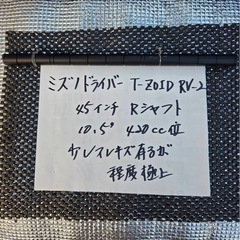 ミズノドライバー T-ZOID RV-2
45インチ Rシャフト
10.5° 420cc位
少しスレキズ有るが
程度極上